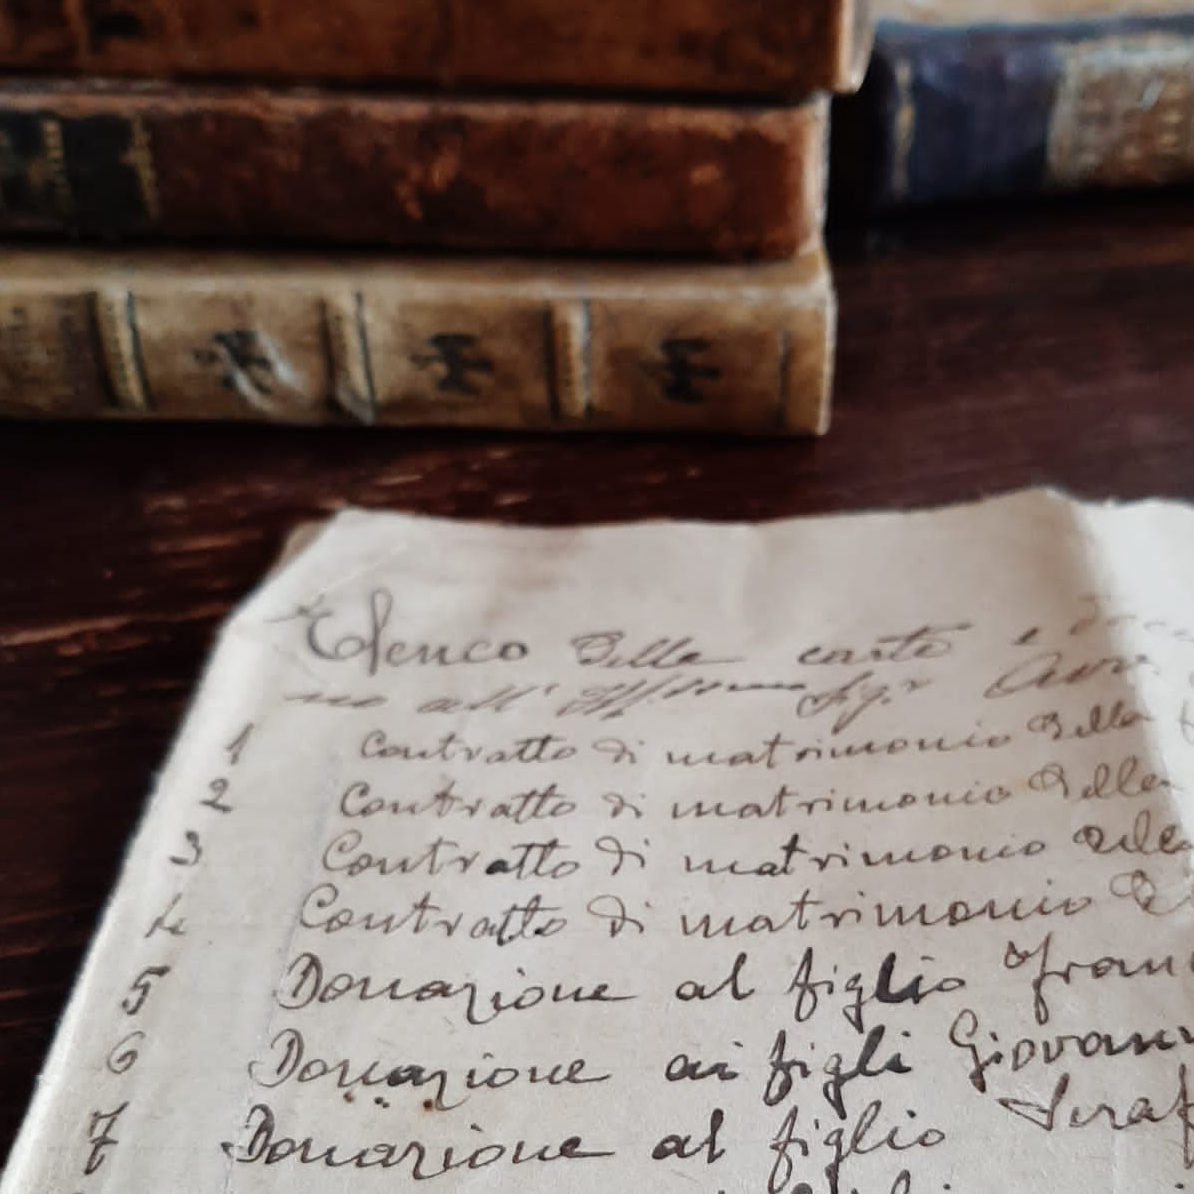 Elenco delle carte e
all' Sigr
1 Contratto di matrimonio della
2 Contratto di matrimonio della
3 Contratto di matrimonio della
4 Contratto di matrimonio
5 Donazione al figlio Fran
6 Donazione ai figli Giovann
7 Donazione al figlio Seraf